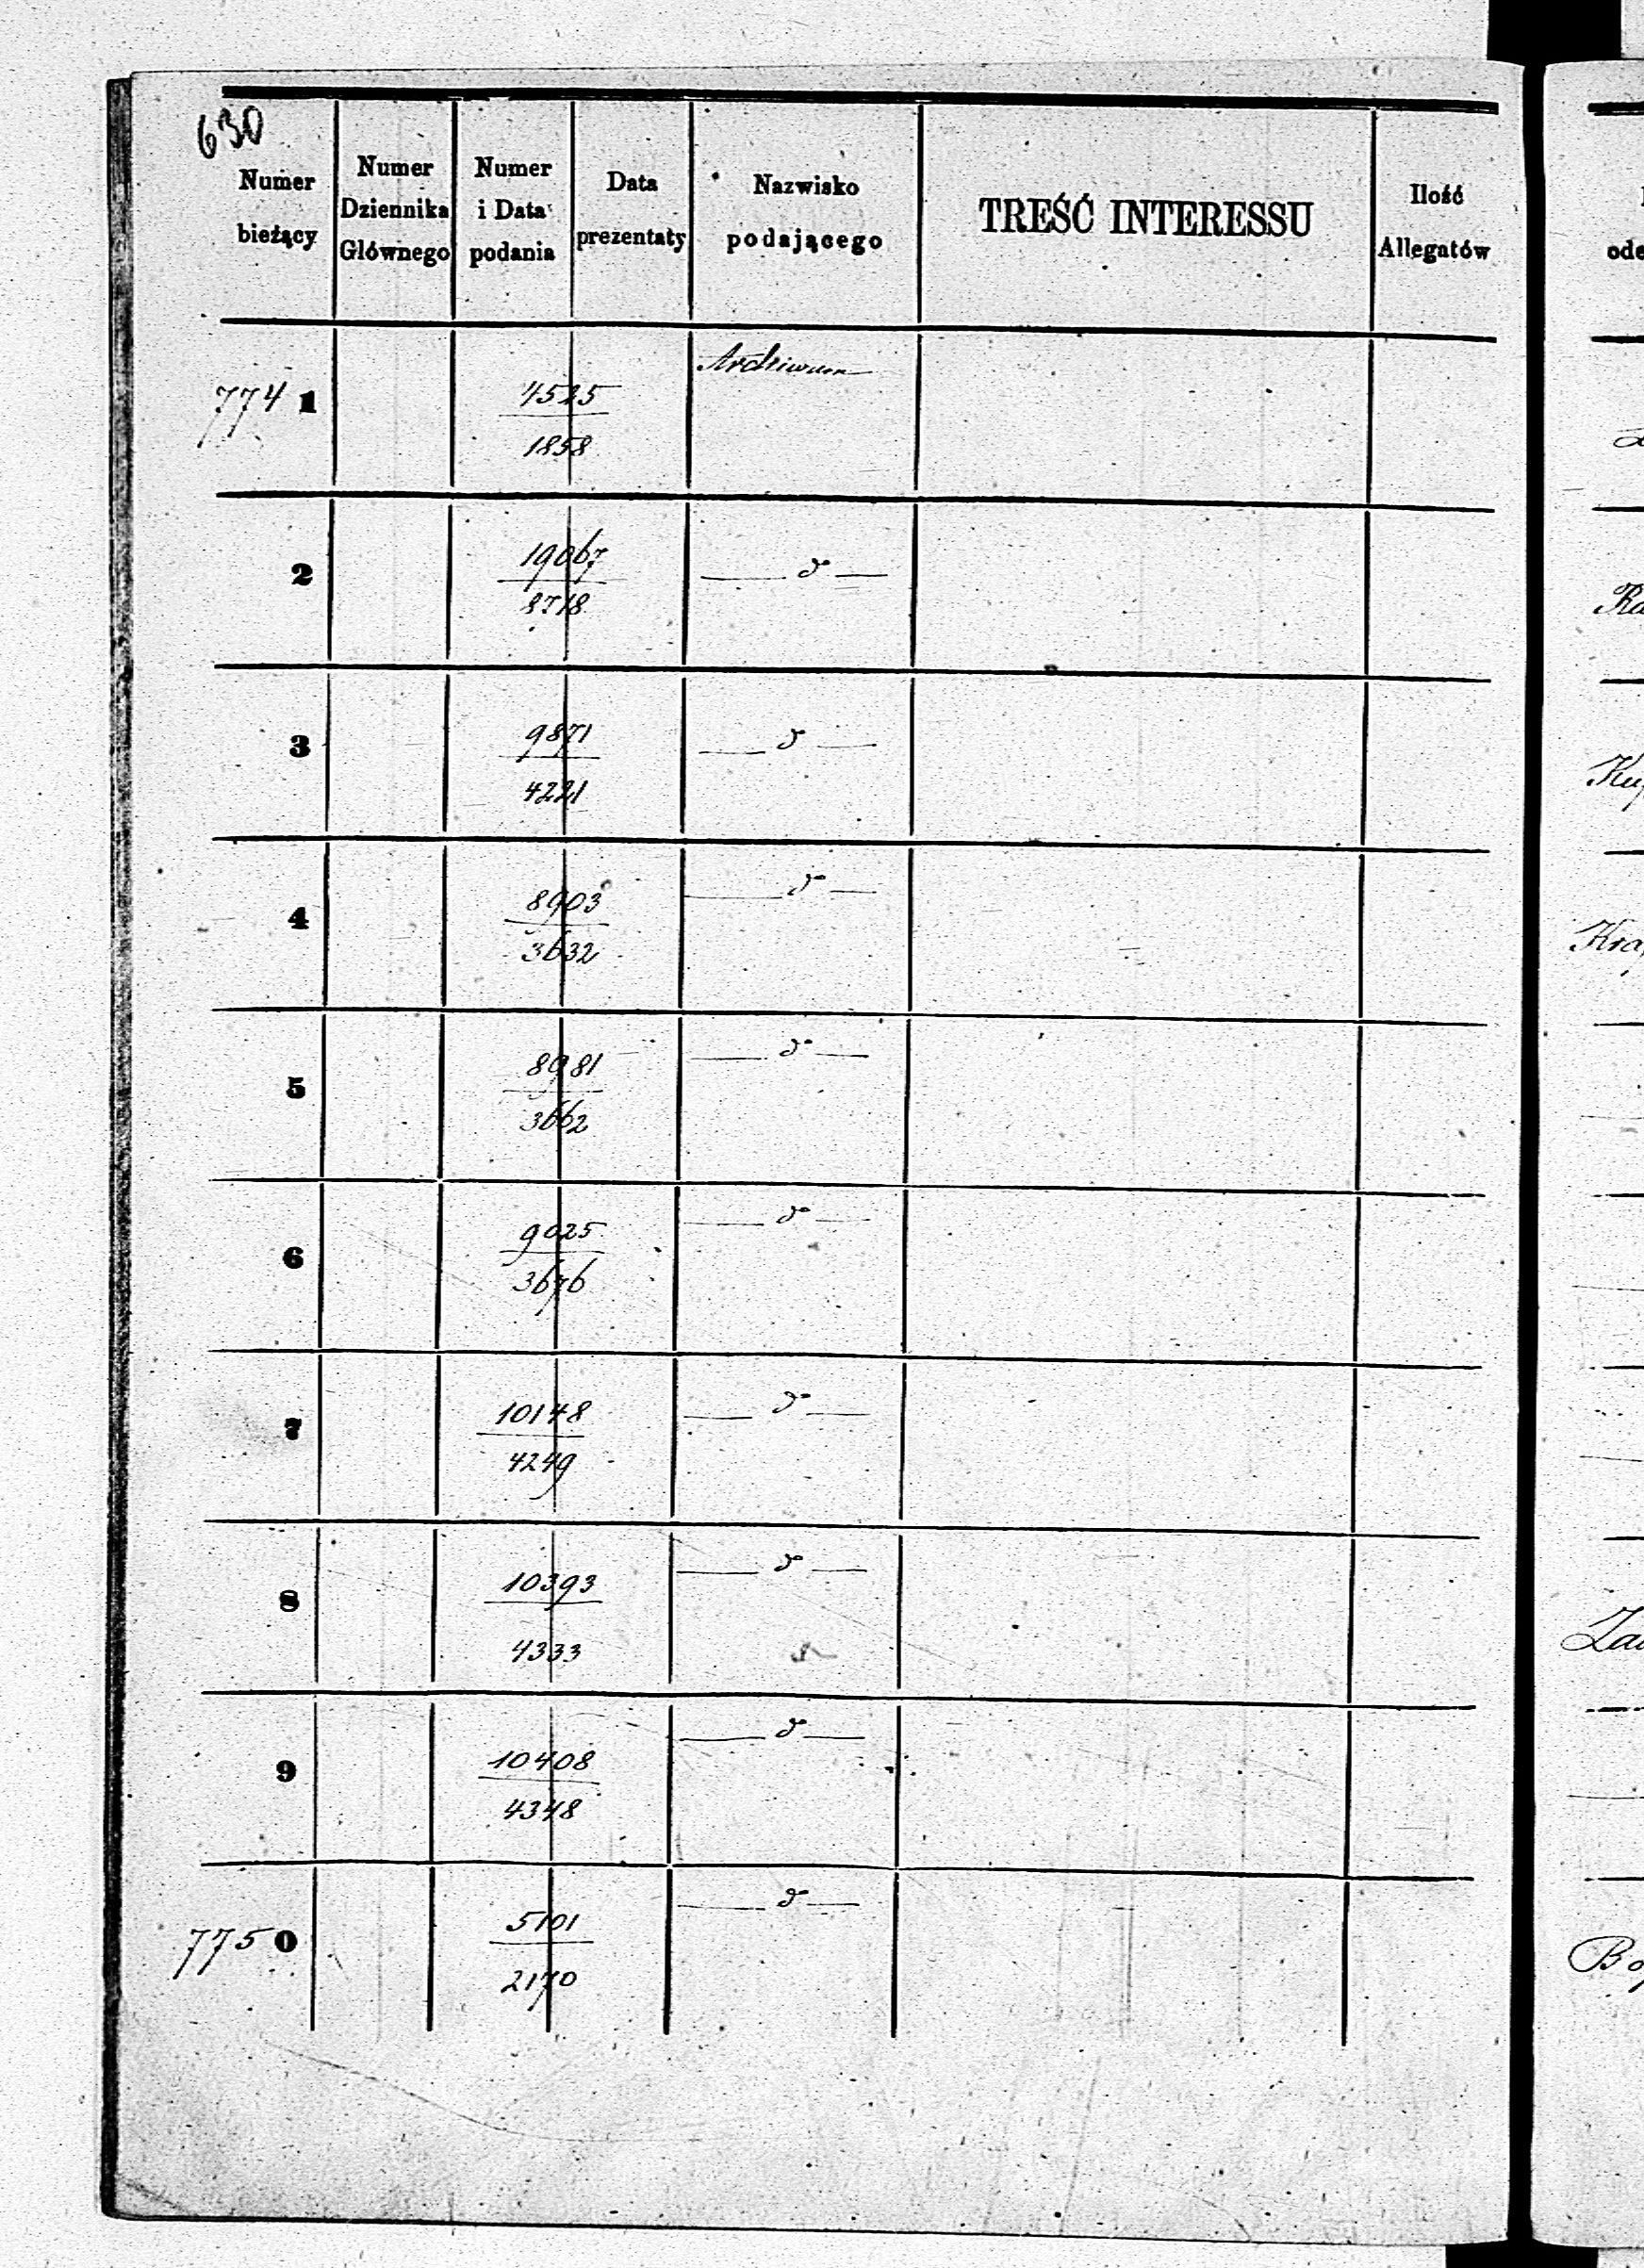 630
Numer bieżący
Numer Dziennika Głównego
Numer i Data podania
Data prezentaty
Nazwisko podającego
TREŚĆ INTERESSU
Ilość Allegatów
774 1
4525
1858
Archiwum
2
19067
8718
d°
3
9871
4221
d°
4
8903
3632
d°
5
8981
3662
d°
6
9025
3676
d°
7
10148
4249
d°
8
10393
4333
d°
9
10408
4348
d°
775 0
5101
2170
d°